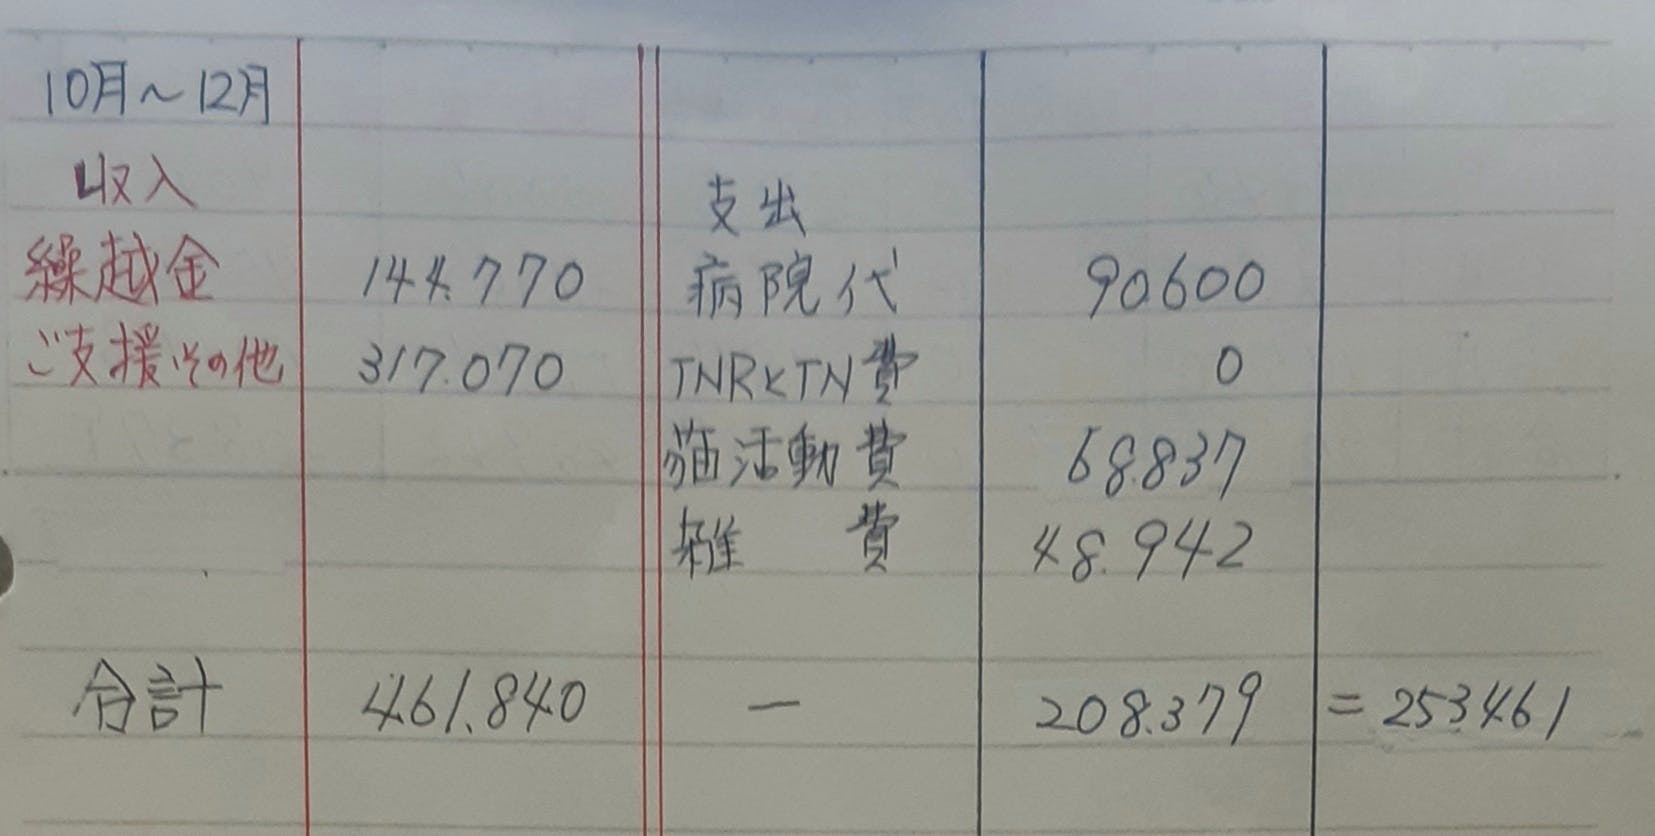 10月～12月
収入 支出
繰越金 144.770 病院代 90.600
ご支援その他 317.070 TNRKTN費 0
猫活動費 68.837
雑 費 48.942
合計 461.840 － 208.379 = 253461